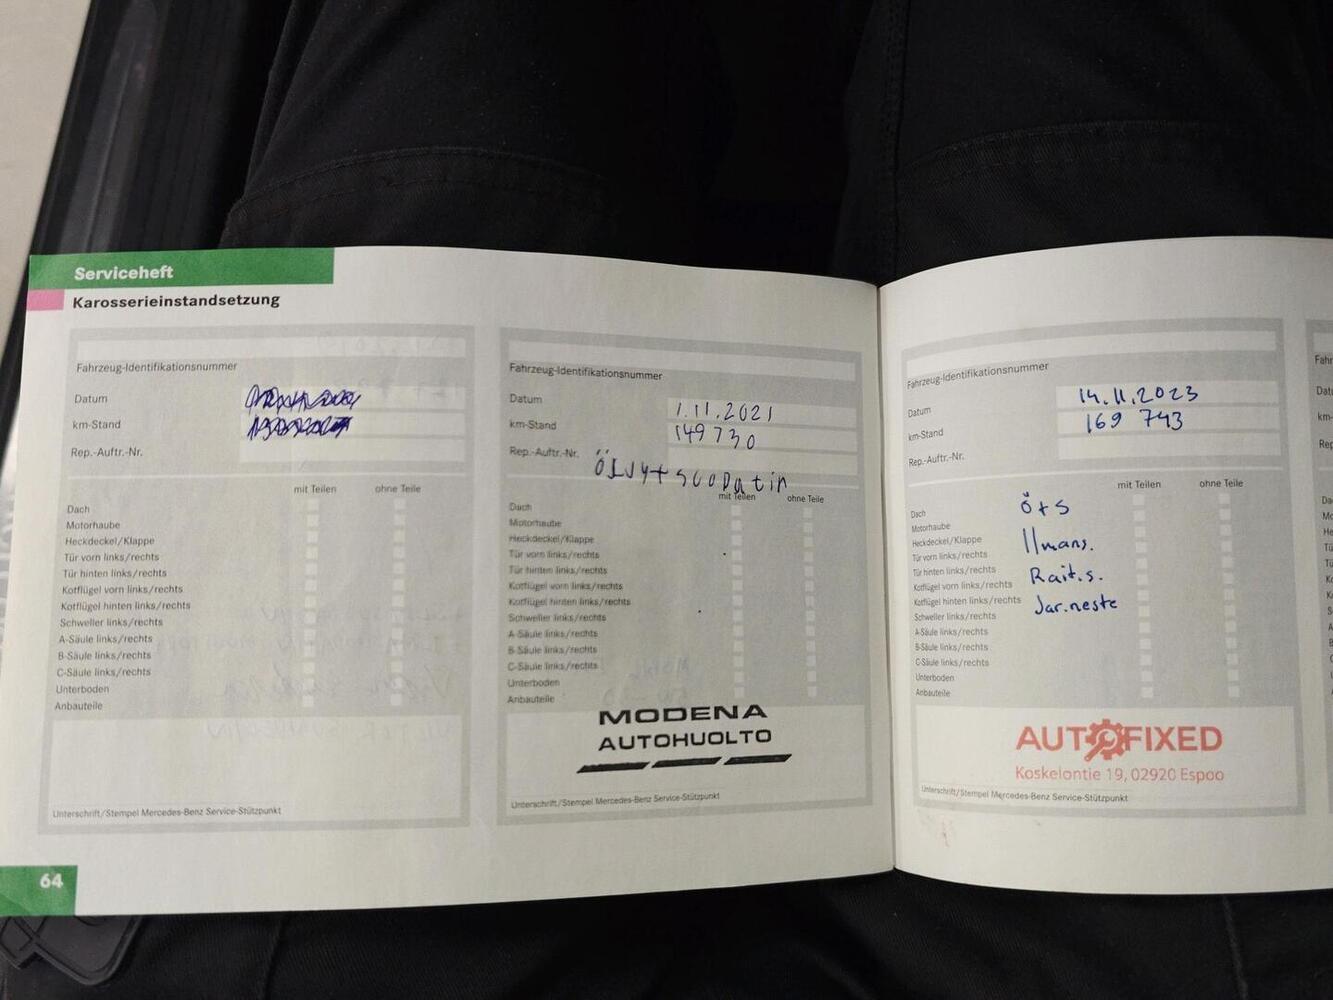 Serviceheft
Karosserieinstandsetzung
Fahrzeug-Identifikationsnummer
Datum
km-Stand
Rep.-Auftr.-Nr.
mit Teilen ohne Teile
Dach
Motorhaube
Heckdeckel/Klappe
Tür vorn links/rechts
Tür hinten links/rechts
Kotflügel vorn links/rechts
Kotflügel hinten links/rechts
Schweller links/rechts
A-Säule links/rechts
B-Säule links/rechts
C-Säule links/rechts
Unterboden
Anbauteile
Unterschrift/Stempel Mercedes-Benz Service-Stützpunkt
64
Fahrzeug-Identifikationsnummer
Datum 1.11.2021
km-Stand 149730
Rep.-Auftr.-Nr.
mit Teilen ohne Teile
Dach
Motorhaube
Heckdeckel/Klappe
Tür vorn links/rechts
Tür hinten links/rechts
Kotflügel vorn links/rechts
Kotflügel hinten links/rechts
Schweller links/rechts
A-Säule links/rechts
B-Säule links/rechts
C-Säule links/rechts
Unterboden
Anbauteile
MODENA
AUTOHUOLTO
Unterschrift/Stempel Mercedes-Benz Service-Stützpunkt
Fahrzeug-Identifikationsnummer
Datum 14.11.2023
km-Stand 169 743
Rep.-Auftr.-Nr.
mit Teilen ohne Teile
Ö+S
Ilmans.
Rait.s.
Jar.neste
Dach
Motorhaube
Heckdeckel/Klappe
Tür vorn links/rechts
Tür hinten links/rechts
Kotflügel vorn links/rechts
Kotflügel hinten links/rechts
Schweller links/rechts
A-Säule links/rechts
B-Säule links/rechts
C-Säule links/rechts
Unterboden
Anbauteile
AUTOFIXED
Koskelontie 19, 02920 Espoo
Unterschrift/Stempel Mercedes-Benz Service-Stützpunkt